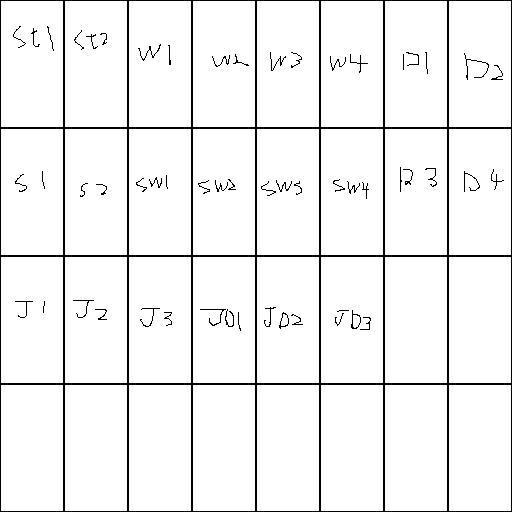 St1 St2 W1 W2 W3 W4 D1 D2
S1 S2 SW1 SW2 SW3 SW4 D3 D4
J1 J2 J3 JD1 JD2 JD3